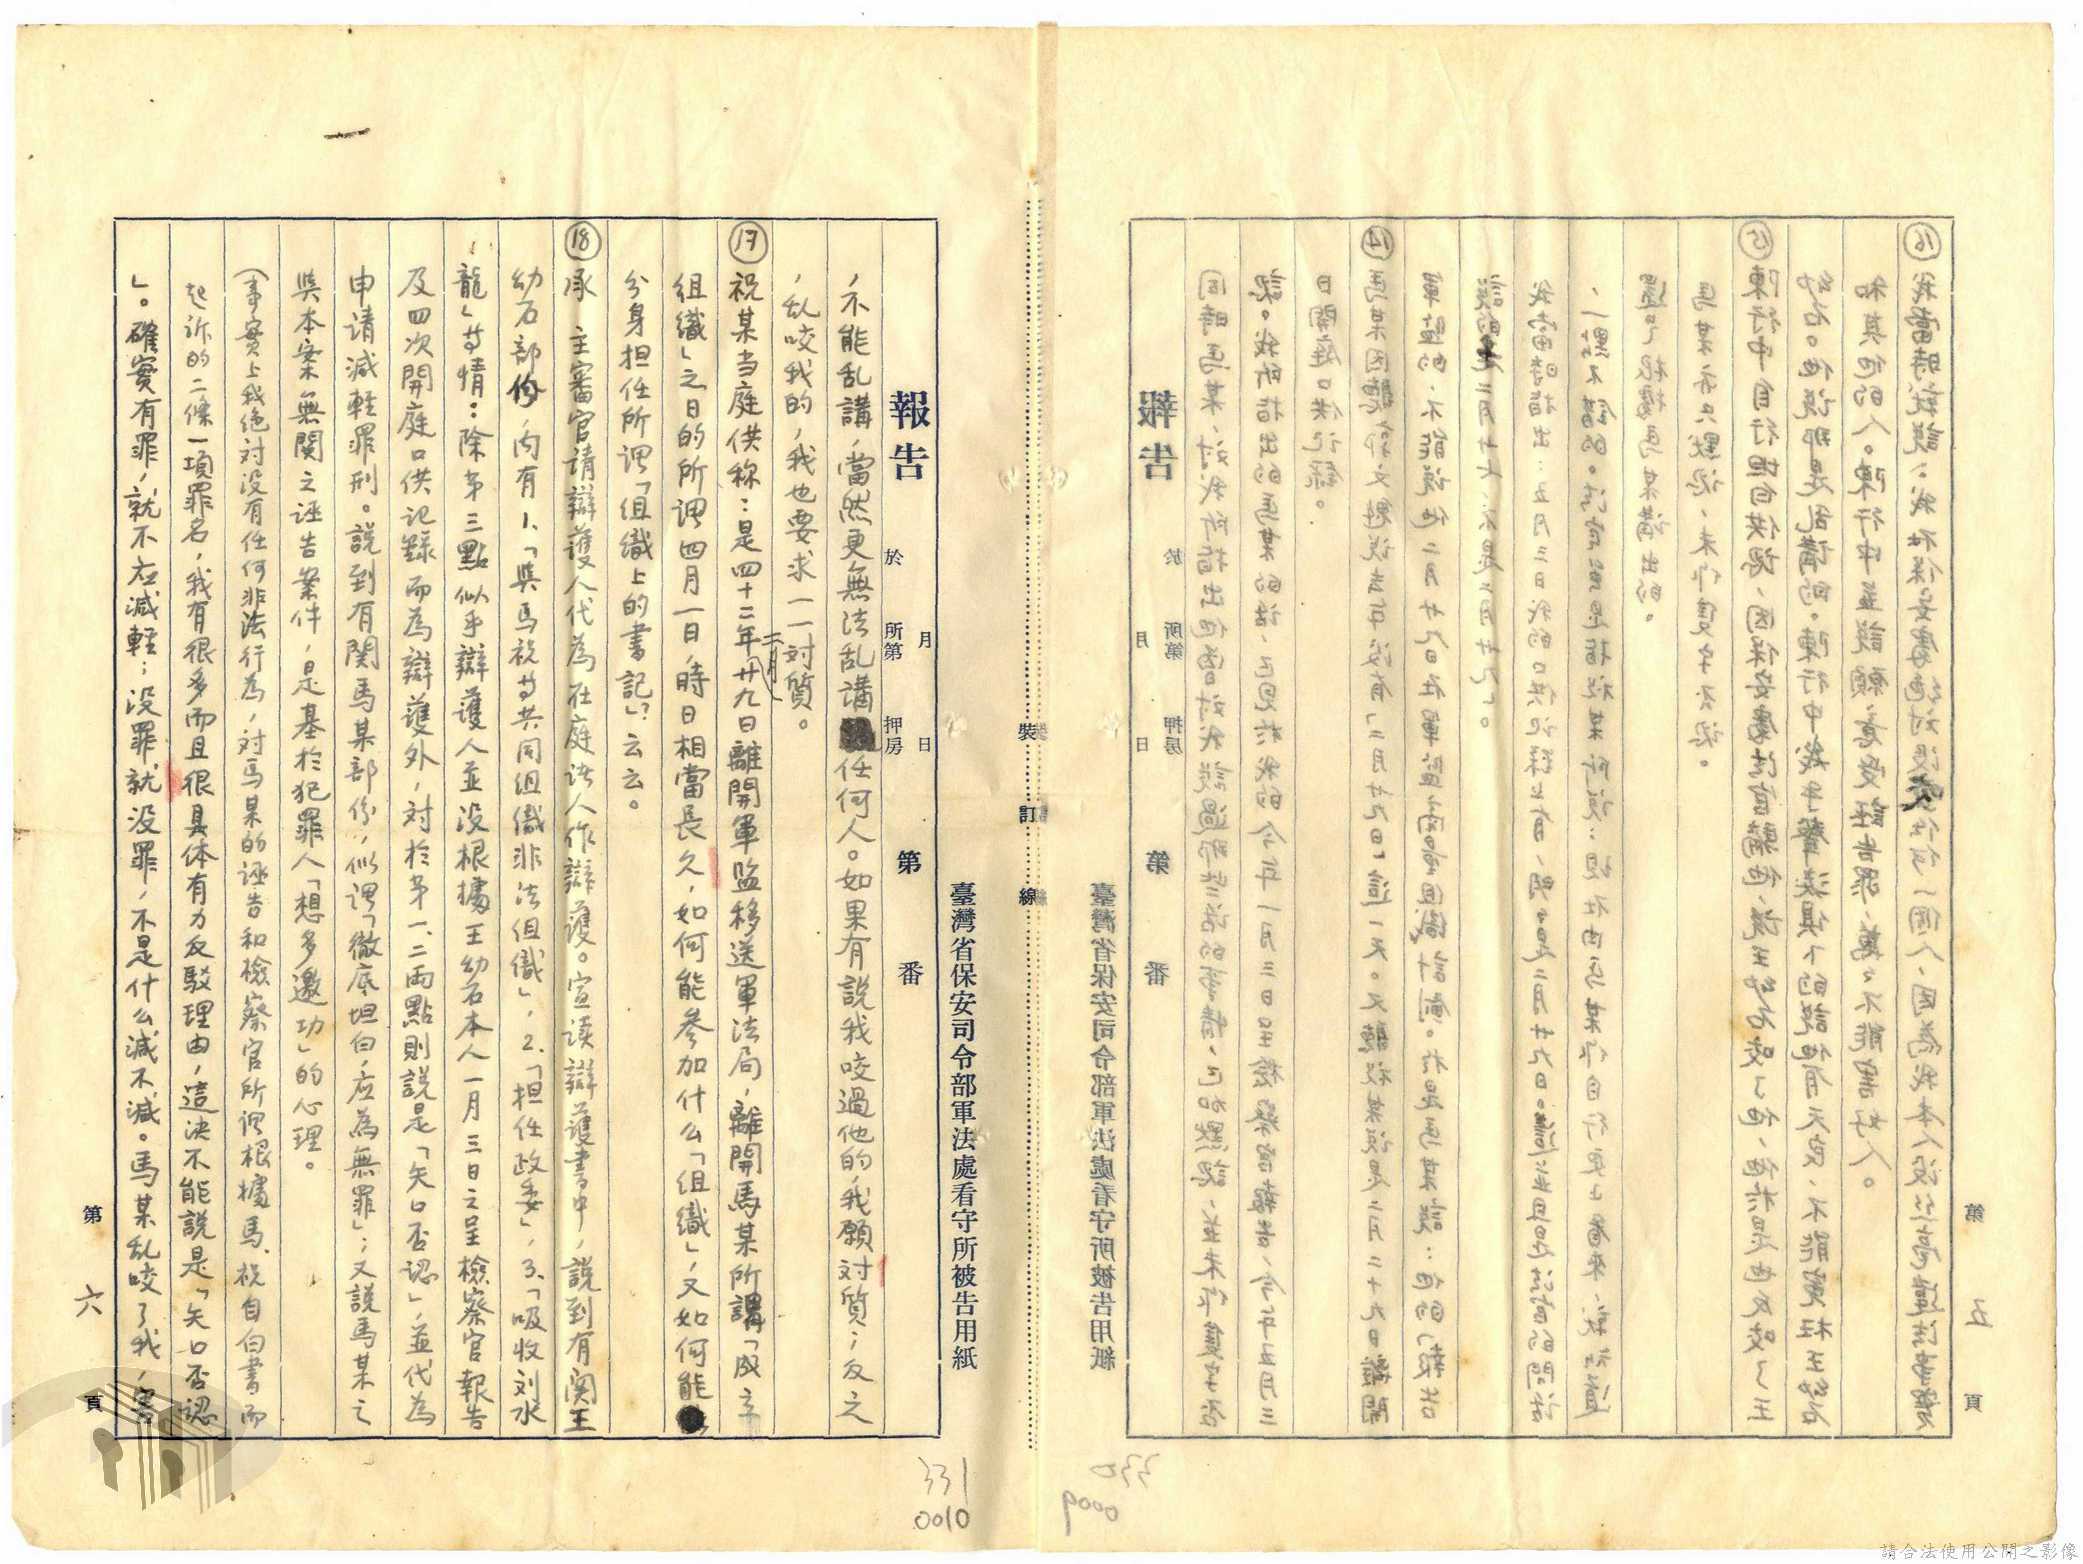 報告
於　所第　押房
月　日
第　番
臺灣省保安司令部軍法處看守所被告用紙
同時馬某，对我所指出他當日对我說過那些話的事情，已加默認，並未作隻字否
認。我所指出的馬某的話，已見於我的今年一月三日呈檢察官報告，今年五月三
日開庭口供記錄。
⑭馬某因聽郭文魁說去年没有「二月廿九日」這一天。又聽祝某說是二月二十九日離開
軍監的，不能說他二月廿九日在軍監內组織計劃。於是馬某說：他的「報告
說的是二月廿七，不是二月廿九」。
我當日指出：五月三日我的口供記錄上有，明明是二月廿九日。這並且是法官的問話
，一點不會錯的。法官於是指祝某所說：現在由馬某作自行更正看來，就知道
還是根據馬某講出的。
馬某亦只默認，未作隻字否認。
⑮陳行中自行坦白供認，因保安處法官騙他，說王幼石咬了他，他於是也反咬了王
幼石。他說那是乱講的。陳行中聲淚俱下的說他有天良，不能冤枉王幼石
和其他的人。陳行中並說願意受誣告罪，萬萬不能害好人。
⑯我當時就說：我在保安處絶对没咬任何一個人，因為我本人没絲毫違法事實
第五頁
330
0009
裝訂線
臺灣省保安司令部軍法處看守所被告用紙
報告
於　所第　押房
月　日
第　番
，不能乱講，當然更無法乱講任何人。如果有說我咬過他的，我願対質；反之
，乱咬我的，我也要求一一対質。
⑰祝某当庭供称：是四十二年二月廿九日離開軍监移送軍法局，離開馬某所謂「成立
組織」之日的所謂四月一日，時日相當長久，如何能參加什么「組織」，又如何能
分身担任所謂「組織上的書記」？云云。
⑱承　主審官请辯護人代為在庭諸人作辯護。宣读辯護書中，說到有関王
幼石部份，內有1、「吳馬祝等共同组織非法组織」，2、「担任政委」，3、「吸收刘水
龍」等情：除第三點似乎辯護人並没根據王幼石本人一月三日之呈檢察官報告
及四次開庭口供记錄而為辯護外，対於第一、二兩點則說是「矢口否認」，並代為
申请減輕罪刑。說到有関馬某部份，似谓「徹底坦白，应為無罪」；又說馬某之
吳本案無関之诬告案件，是基於犯罪人「想多邀功」的心理。
（事實上我绝対没有任何非法行為，対馬某的诬告和檢察官所谓根據馬、祝自白書而
起訴的二條一項罪名，我有很多而且很具体有力反駁理由，這决不能説是「矢口否認
」。確實有罪，就不应減輕；没罪就没罪，不是什么減不減。馬某乱咬了我，害
第六頁
331
0010
請合法使用公開之影像